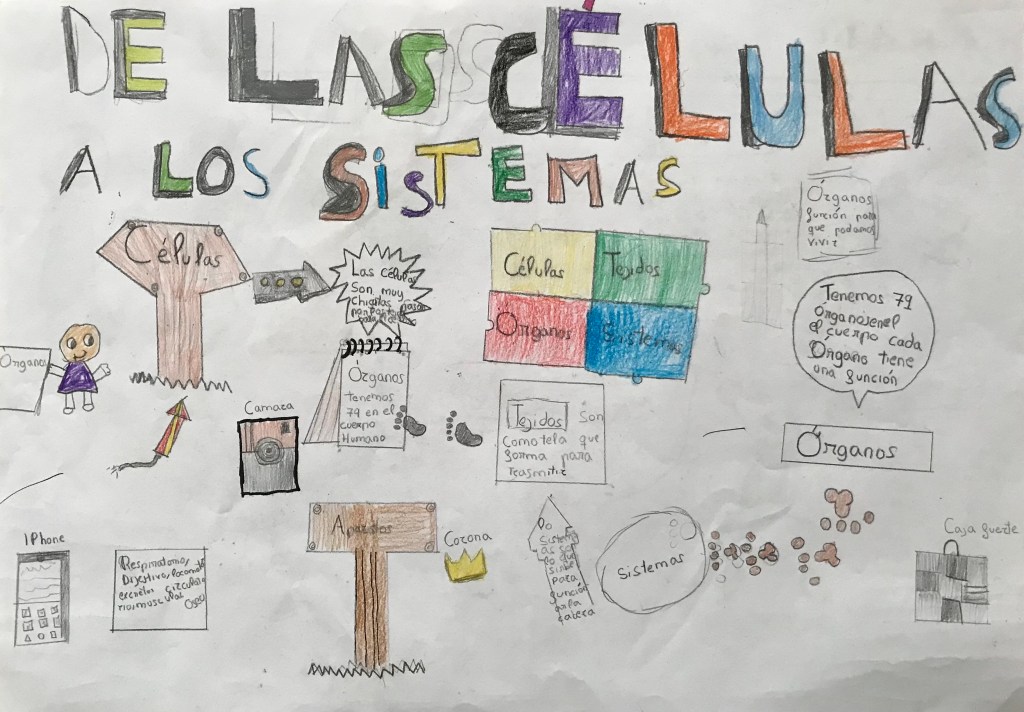 DE LAS CÉLULAS
A LOS SISTEMAS
Células
Las células
Son muy
chiquitas
Células
Tejidos
Organos
Sistemas
Órganos
función para
que podamos
vivir
Tenemos 79
Organos en el
el cuerpo cada
Órgano tiene
una función
Organos
Órganos
tenemos
79 en el
cuerpo
Humano
Camara
Tejidos Son
Como tela que
forma para
trasmitir
Órganos
IPhone
Respiratorio,
Dijestivo, locomoto
escretor circulato
rio muscular
Oseo
Aparatos
Corona
sistema
as co
lo que
sirbe
para
función
Sistemas
Caja fuerte